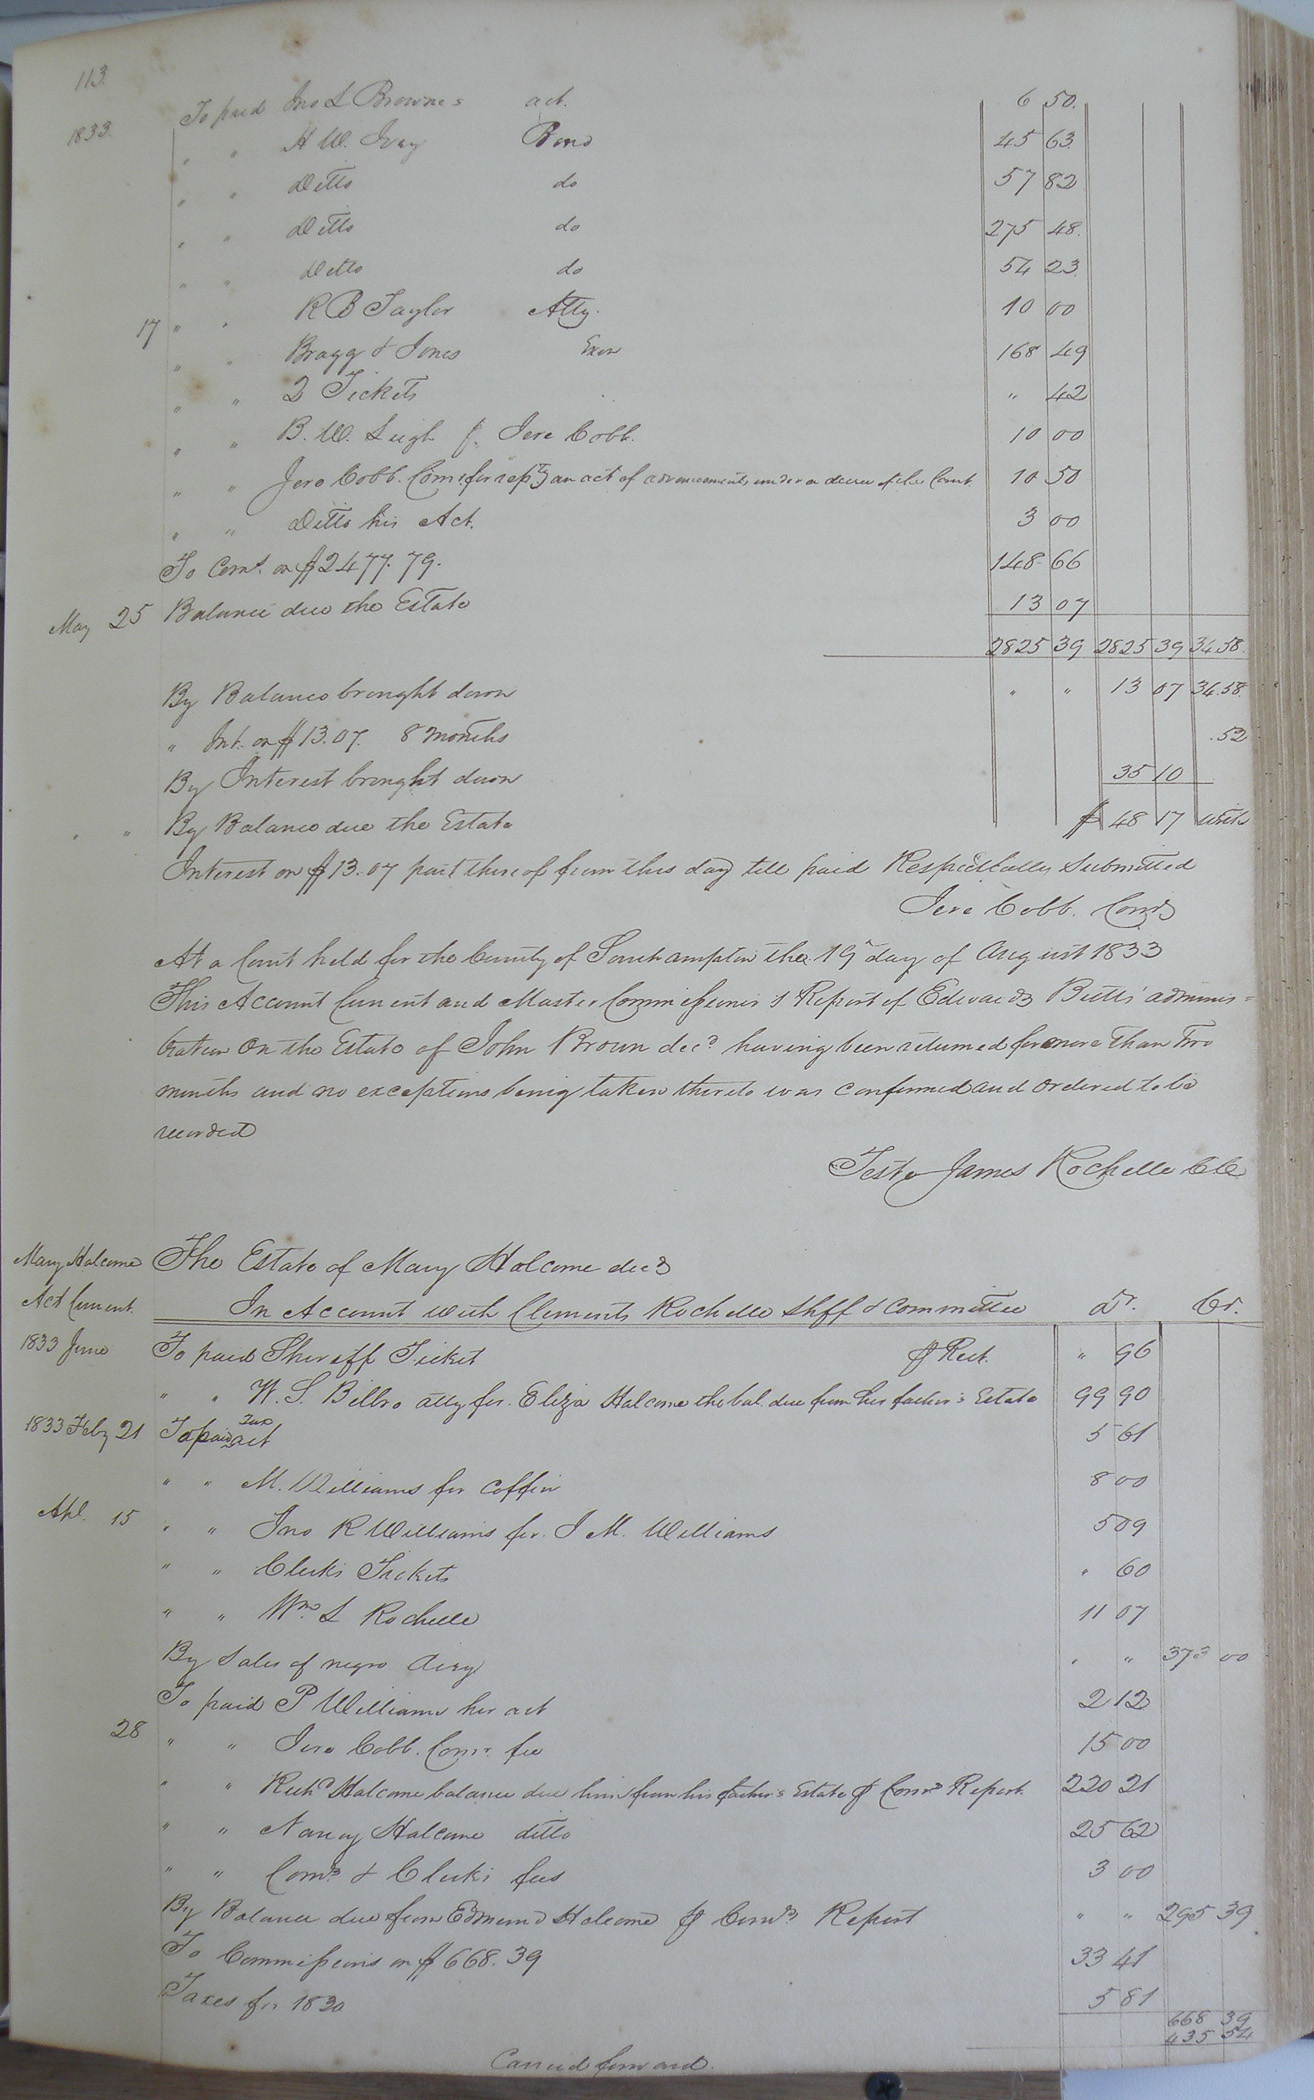 113.
To paid Jno S Browne's act. 6 50.
1833. " " H W. Ivey Bond 45 63.
" " Ditto do 57 82
" " Ditto do 275 48.
" " Ditto do 54 23.
17 " " R B Taylor Atty. 10 00
" " Bragg & Jones Exor 168 49
" " 2 Tickets " 42
" " B. W. Leigh Jere Cobb. 10 00
" " Jere Cobb. Comr for an act of advancements under a decree of the Court. 10 50
" " Ditto his Act. 3 00
To Coms. on $2477.79. 148 66
May 25 Balance due the Estate 13 07
2825 39 2825 39 34.58.
By Balance brought down " " 13 07 34.58
" Int. on $13.07. 8 months .52
By Interest brought down 35 10
" " By Balance due the Estate $ 48 17 with
Interest on $13.07 part thereof from this day till paid Respectfully Submitted
Jere Cobb. Comr
At a Court held for the County of Southampton the 19th day of August 1833
This Account Current and Master Commissioner's Report of Edwards Butts' adminis=
tration on the Estate of John Brown decd having been returned for more than Two
months and no exceptions being taken thereto was confirmed and ordered to be
recorded
Teste James Rochelle CC
Mary Halcome The Estate of Mary Halcome decd
Act Current. In Account with Clements Rochelle Shff & Committee Dr. Cr.
1833 June To paid Sheriff Ticket Rect. " 96
" " W. S. Bilbro atty for Eliza Halcome the bal. due from her father's Estate 99 90
1833 Feby 21 To paid Tax act 5 61
" " M. Williams for Coffin 8 00
Apl. 15 " " Jno R Williams for J M. Williams 5 09
" " Clerks Tickets " 60
" " Wm. S Rochelle 11 07
By Sales of negro " " 373 00
To paid P Williams her act 2 12
28 " " Jere Cobb. Comr. fee 15 00
" " Richd Halcome balance due him from his father's Estate Comrs Report. 220 21
" " Nancy Halcome ditto 25 62
" " Comr & Clerks fees 3 00
By Balance due from Edmund Halcome Comrs Report " " 295 39
To Commissions on $668.39 33 41
Taxes for 1830 5 81
668 39
435 54
Carried forward.